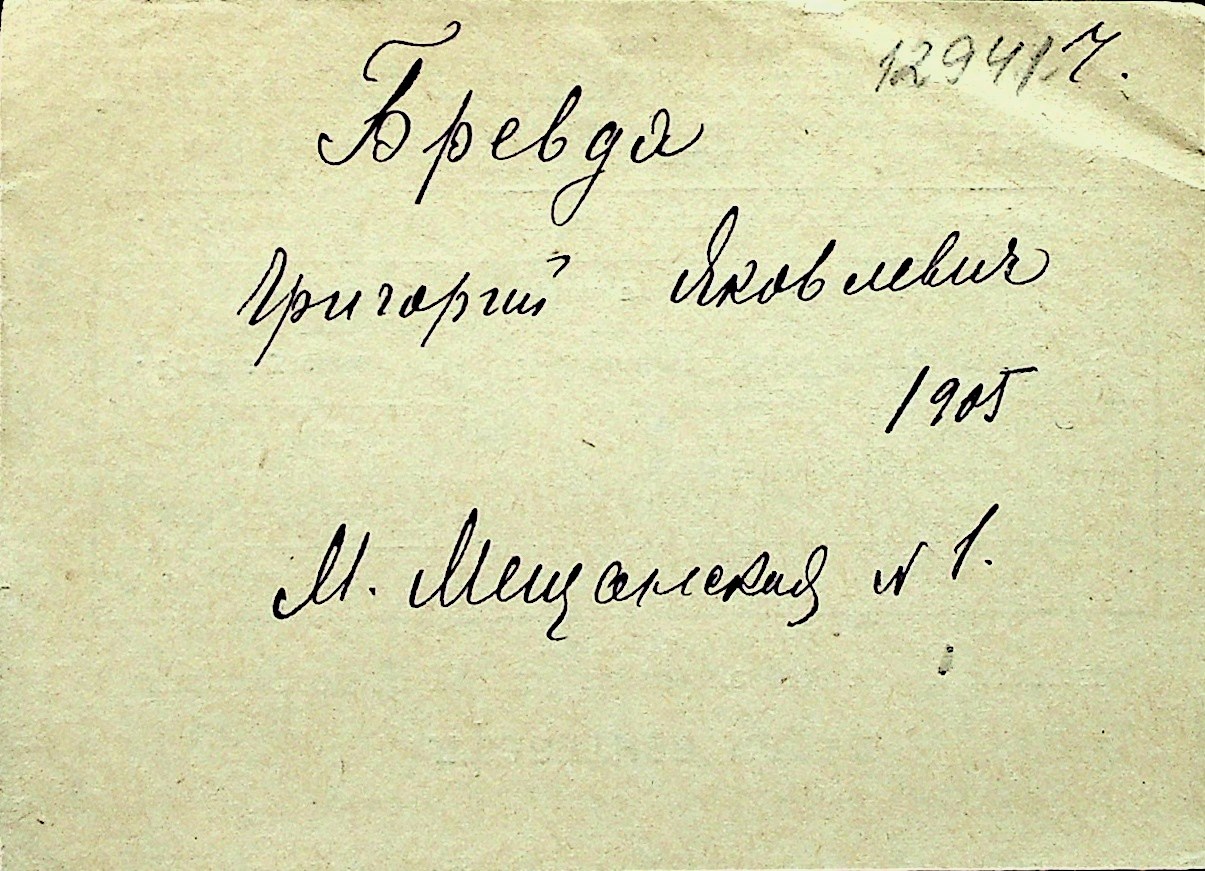 12941 ч.
Бревда
Григорий Яковлевич
1905
М. Мещанская № 1.